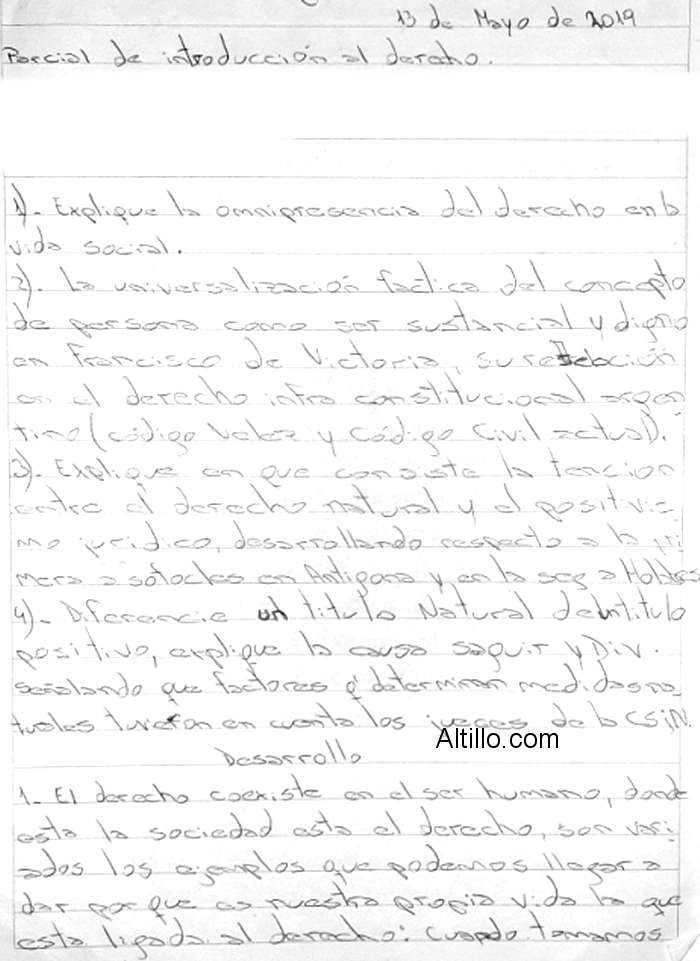 13 de Mayo de 2019
Parcial de introducción al derecho.
1)- Explique la omnipresencia del derecho en la
vida social.
2). La universalización factica del concepto
de persona como ser sustancial y digno
en Francisco de Victoria, su relación
en el derecho infra constitucional argen
tino (código Velez y Código Civil actual).
3)- Explique en que consiste la tencion
entre el derecho natural y el positivis
mo juridico, desarrollando respecto a la pri
mera a sofocles en Antigona y en la seg a Hobbes
4)- Diferencie un titulo Natural de un titulo
positivo, explique la causa saguir y Div.
señalando que factores q' determinan medidas na
turales tuvieron en cuenta los jueces de la CSJN.
Altillo.com
Desarrollo
1- El derecho coexiste en el ser humano, donde
esta la sociedad esta el derecho, son vari
ados los ejemplos que podemos llegar a
dar por que es nuestra propia vida la que
esta ligada al derecho: cuando tomamos